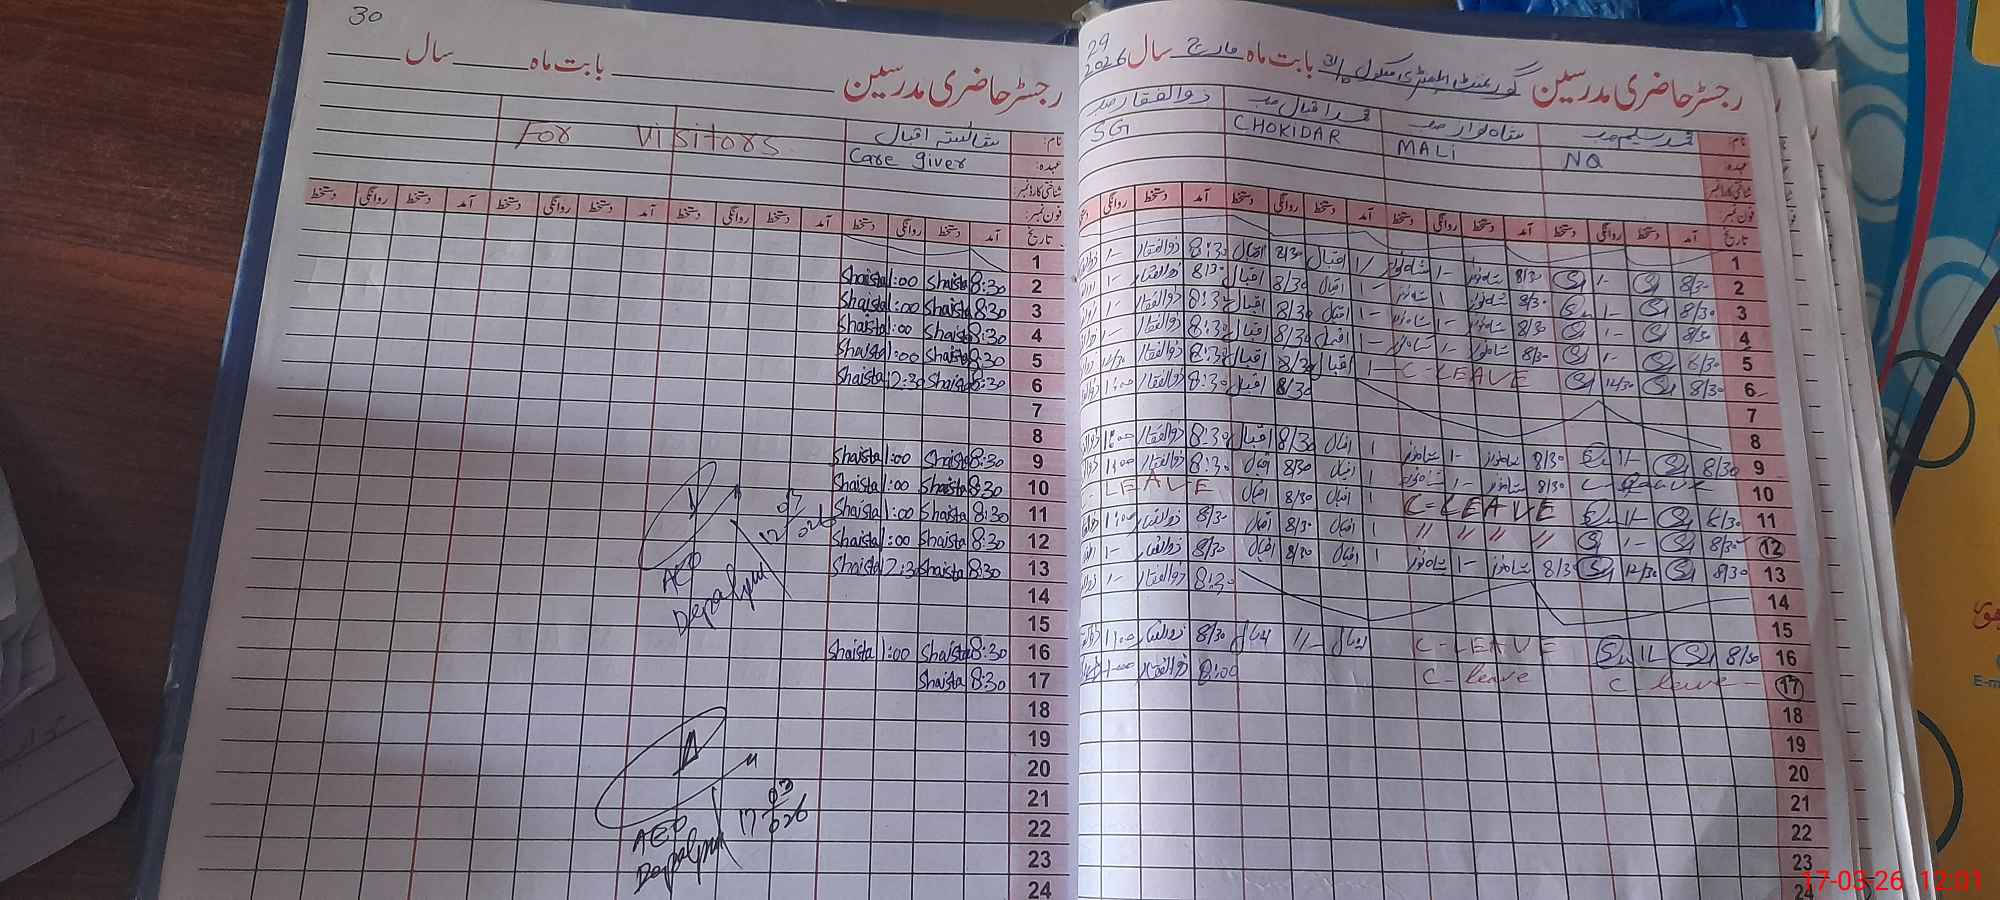 30
رجسٹر حاضری مدرسین بابت ماہ سال
For Visitors
نام: شائستہ اقبال
عہدہ: Care giver
شناختی کارڈ نمبر:
فون نمبر:
تاریخ آمد دستخط روانگی دستخط آمد دستخط روانگی دستخط آمد دستخط روانگی دستخط آمد دستخط روانگی دستخط
1
2 8:30 Shaista 1:00 Shaista
3 8:30 Shaista 1:00 Shaista
4 8:30 Shaista 1:00 Shaista
5 8:30 Shaista 1:00 Shaista
6 8:30 Shaista 12:30 Shaista
7
8
9 8:30 Shaista 1:00 Shaista
10 8:30 Shaista 1:00 Shaista
11 8:30 Shaista 1:00 Shaista
12 8:30 Shaista 1:00 Shaista
13 8:30 Shaista 12:30 Shaista
14
15
16 8:30 Shaista 1:00 Shaista
17 8:30 Shaista
18
19
20
21
22
23
24
12/03/026
AEO
Depalpur
17/03/026
AEO
Depalpur
29
رجسٹر حاضری مدرسین گورنمنٹ ایلیمنٹری سکول بابت ماہ مارچ سال 2026
نام: محمد سلیم صاحب شاہ نواز صاحب محمد اقبال صاحب ذوالفقار صاحب
عہدہ: NQ MALI CHOKIDAR SG
شناختی کارڈ نمبر:
فون نمبر:
تاریخ آمد دستخط روانگی دستخط آمد دستخط روانگی دستخط آمد دستخط روانگی دستخط آمد دستخط روانگی
1
2 8/30 1- 8/30 شاہ نواز 1- شاہ نواز 1/- اقبال 8/30 اقبال 8:30 ذوالفقار 1-
3 8/30 1- 8/30 شاہ نواز 1 شاہ نواز 1- اقبال 8/30 اقبال 8:30 ذوالفقار 1-
4 8/30 1- 8/30 شاہ نواز 1- شاہ نواز 1- اقبال 8/30 اقبال 8:30 ذوالفقار 1-
5 1- 8/30 شاہ نواز 1- شاہ نواز 1- اقبال 8/30 اقبال 8:30 ذوالفقار
6 8/30 12/30 C-LEAVE 1- اقبال 8/30 اقبال 8:30 ذوالفقار
7
8
9 8/30 1/- 8/30 شاہ نواز 1- شاہ نواز 1 اقبال 8/30 اقبال 8:30 ذوالفقار 1:00
10 C-Leave 8/30 شاہ نواز 1- شاہ نواز 1 اقبال 8/30 اقبال 8:30 ذوالفقار 1:00
11 1- C-LEAVE 1 اقبال 8/30 اقبال LEAVE
12 8/30 1- // // // // 1 اقبال 8/30 اقبال 8/30 ذوالفقار 1:00
13 8/30 12/30 8/30 شاہ نواز 1- شاہ نواز 1 اقبال 8/30 اقبال 8/30 ذوالفقار 1-
14 8:30 ذوالفقار 1-
15
16 8/30 C-LEAVE اقبال 1/- اقبال 8/30 ذوالفقار 1:00
17 C-leave C-leave 8:00 ذوالفقار 1:00
18
19
20
21
22
23
24
17-03-26 12:01